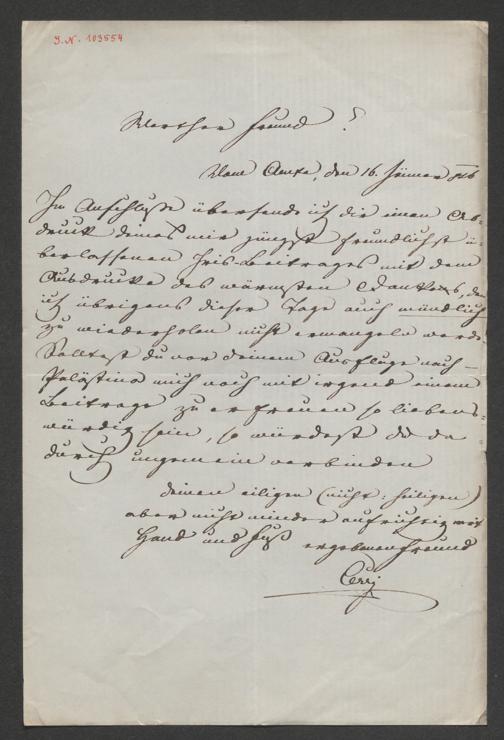 J. N. 103554
Werther Freund!
Vom Amte, den 16. Jänner 846
Im Anschluße übersende ich dir einen Ab-
druck deines mir jüngst freundlichst ü-
berlassenen Iris-Beitrages mit dem
Ausdrucke des wärmsten Dankes, den
ich übrigens dieser Tage auch mündlich
zu wiederholen nicht ermangeln werde.
Solltest du vor deinem Ausfluge nach
Palästina mich noch mit irgend einem
Beitrage zu erfreuen so liebens-
würdig sein, so würdest du da
durch ungemein verbinden
deinen eiligen (nicht: heiligen)
aber nicht minder aufrichtig mit
Hand und Fuß ergebenen Freund